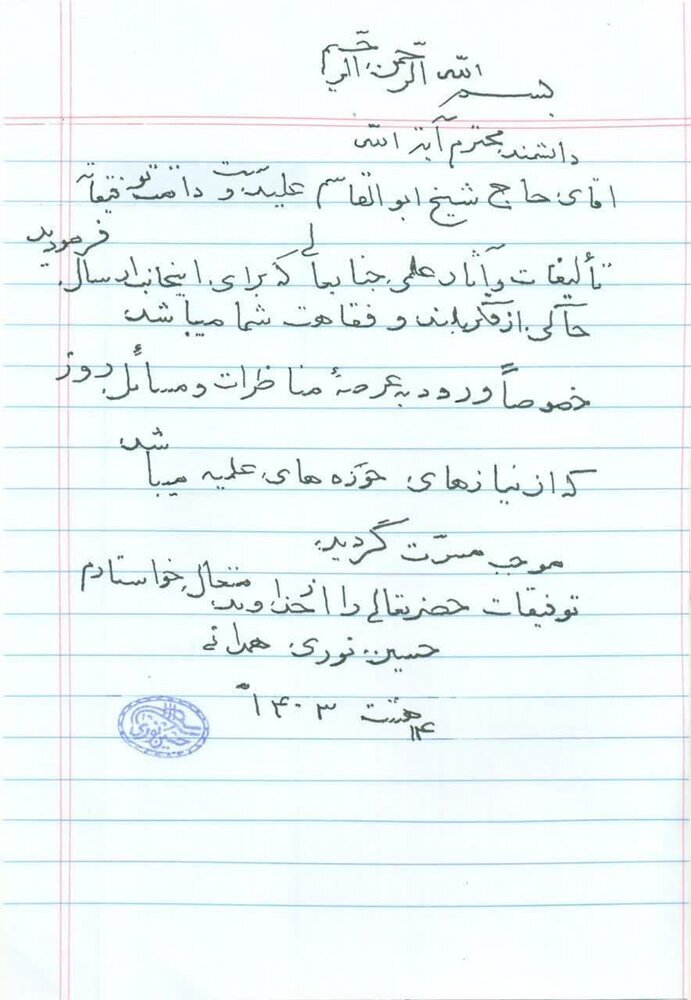 بسم الله الرحمن الرحیم
دانشمند محترم آیة الله
آقای حاج شیخ ابوالقاسم علیدوست دامت توفیقاته
تألیفات و آثار علمی جنابعالی که برای اینجانب ارسال فرمودید
حاکی از فکر بلند و فقاهت شما میباشد
خصوصاً ورود به عرصهٔ مناظرات و مسائل روز
که از نیازهای حوزه های علمیه میباشد
موجب مسرّت گردید
توفیقات حضرتعالی را از خداوند متعال خواستارم
حسین نوری همدانی
۱۴۰۳
حسین نوری